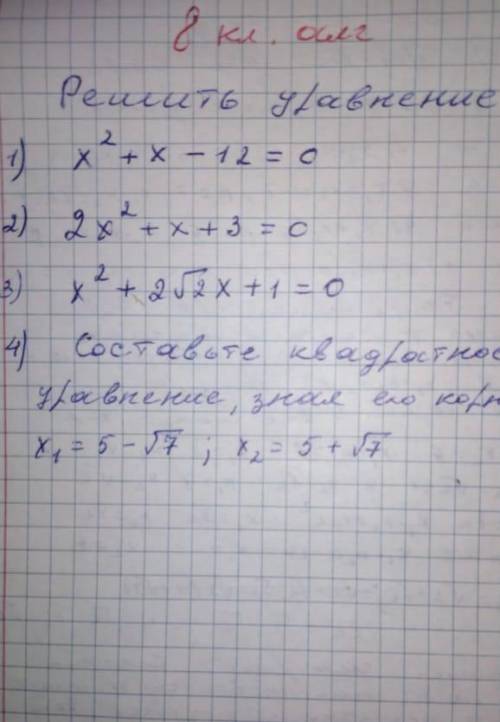 8 кл. алг
Решить уравнение
1) x² + x - 12 = 0
2) 2x² + x + 3 = 0
3) x² + 2√2x + 1 = 0
4) Составьте квадратное
уравнение, зная его корн
x₁ = 5 - √7 ; x₂ = 5 + √7